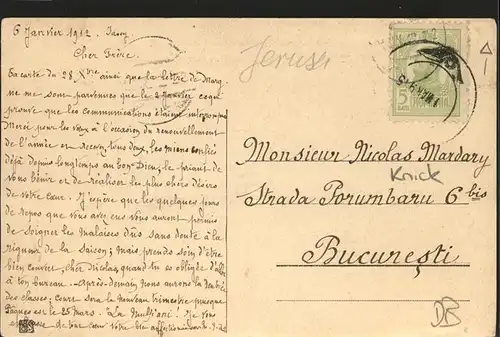 6 Janvier 1912. Jassy
Cher Frère.
Ta carte du 28 Xbre ainsi que la lettre de Marg.
ne me sont parvenues que le 2 Janvier ce qui
prouve que les communications étaient interrompues
Merci pour tes vœux à l'occasion du renouvellement
de l'année et recevez tous deux, les miens confiés
déjà depuis longtemps au bon Dieu, le priant de
vous bénir et de réaliser les plus chers désirs
de votre cœur. J'espère que les quelques jours
de repos que vous avez eus vous auront permis
de soigner les malaises dûs sans doute à la
rigueur de la saison; mais prends soin d'être
bien couvert, cher Nicolas, quand tu es obligé d'aller
à ton bureau. Après-demain nous aurons la rentrée
des classes; court sera le nouveau trimestre puisque
Pâques est le 25 Mars. "La mulţi ani"! Je vous
de tout cœur votre bien affectionnée
Jerusi
5
Monsieur Nicolas Mardary
Knick
Strada Porumbaru 6 bis
Bucureşti
DB